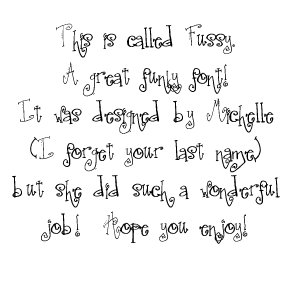 This is called Fussy.
A great funky font!
It was designed by Michelle
(I forget your last name)
but she did such a wonderful
job! Hope you enjoy!